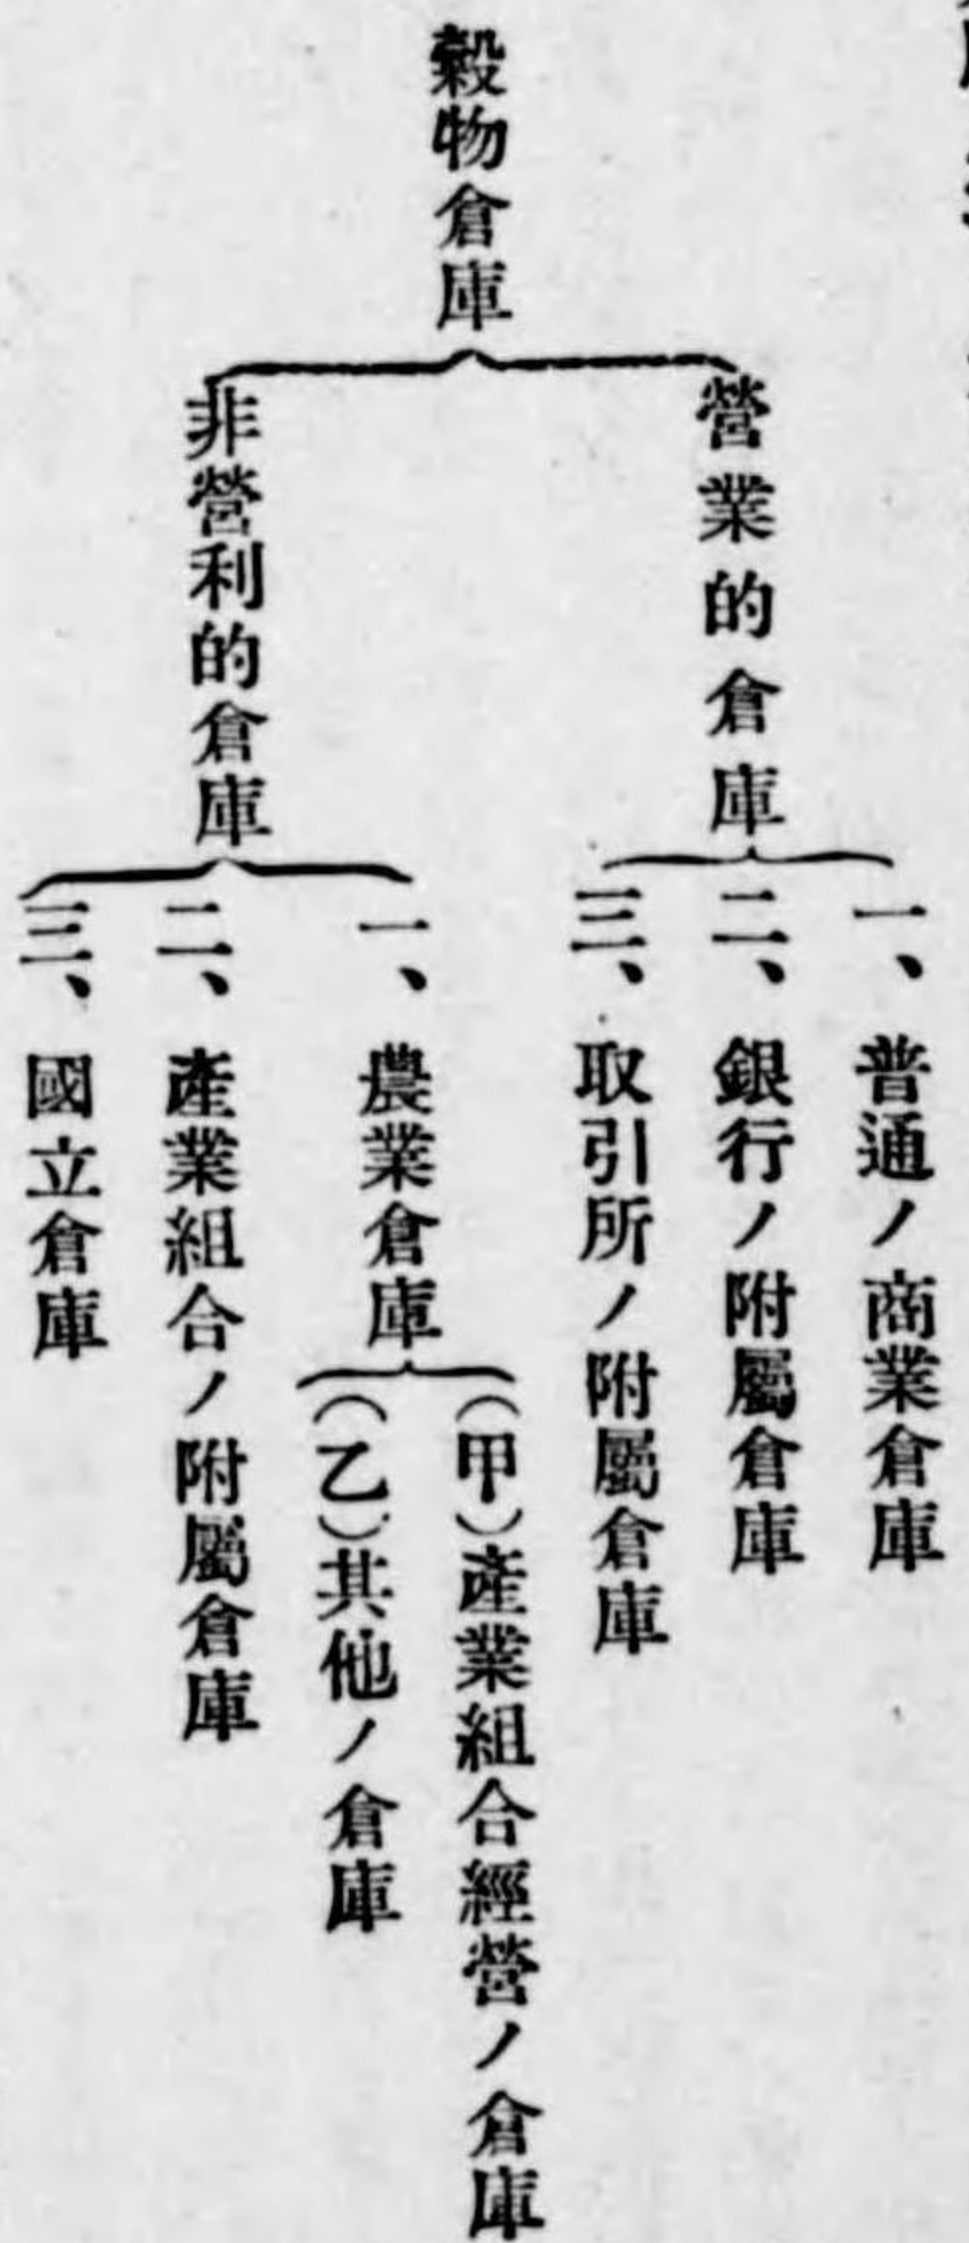 穀物倉庫
營業的倉庫
一、普通ノ商業倉庫
二、銀行ノ附屬倉庫
三、取引所ノ附屬倉庫
非營利的倉庫
一、農業倉庫
(甲)產業組合經營ノ倉庫
(乙)其他ノ倉庫
二、產業組合ノ附屬倉庫
三、國立倉庫